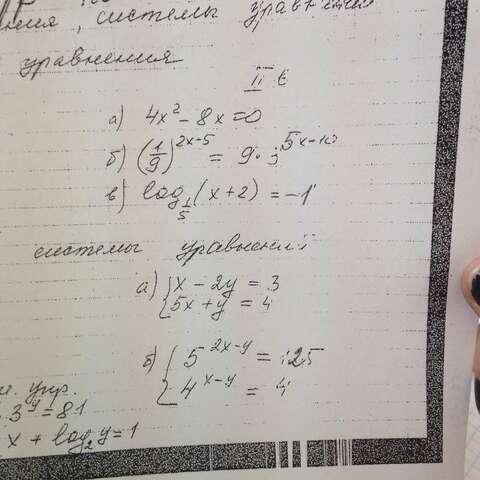 системы уравнений
уравнения
II в
а) 4x² - 8x = 0
б) (1/9)^(2x-5) = 9·3^(5x-10)
в) log_(1/5)(x+2) = -1
системы уравнений
а) { x - 2y = 3
5x + y = 4
б) { 5^(2x-y) = 125
4^(x-y) = 4
упр.
3^y = 81
x + log₂y = 1